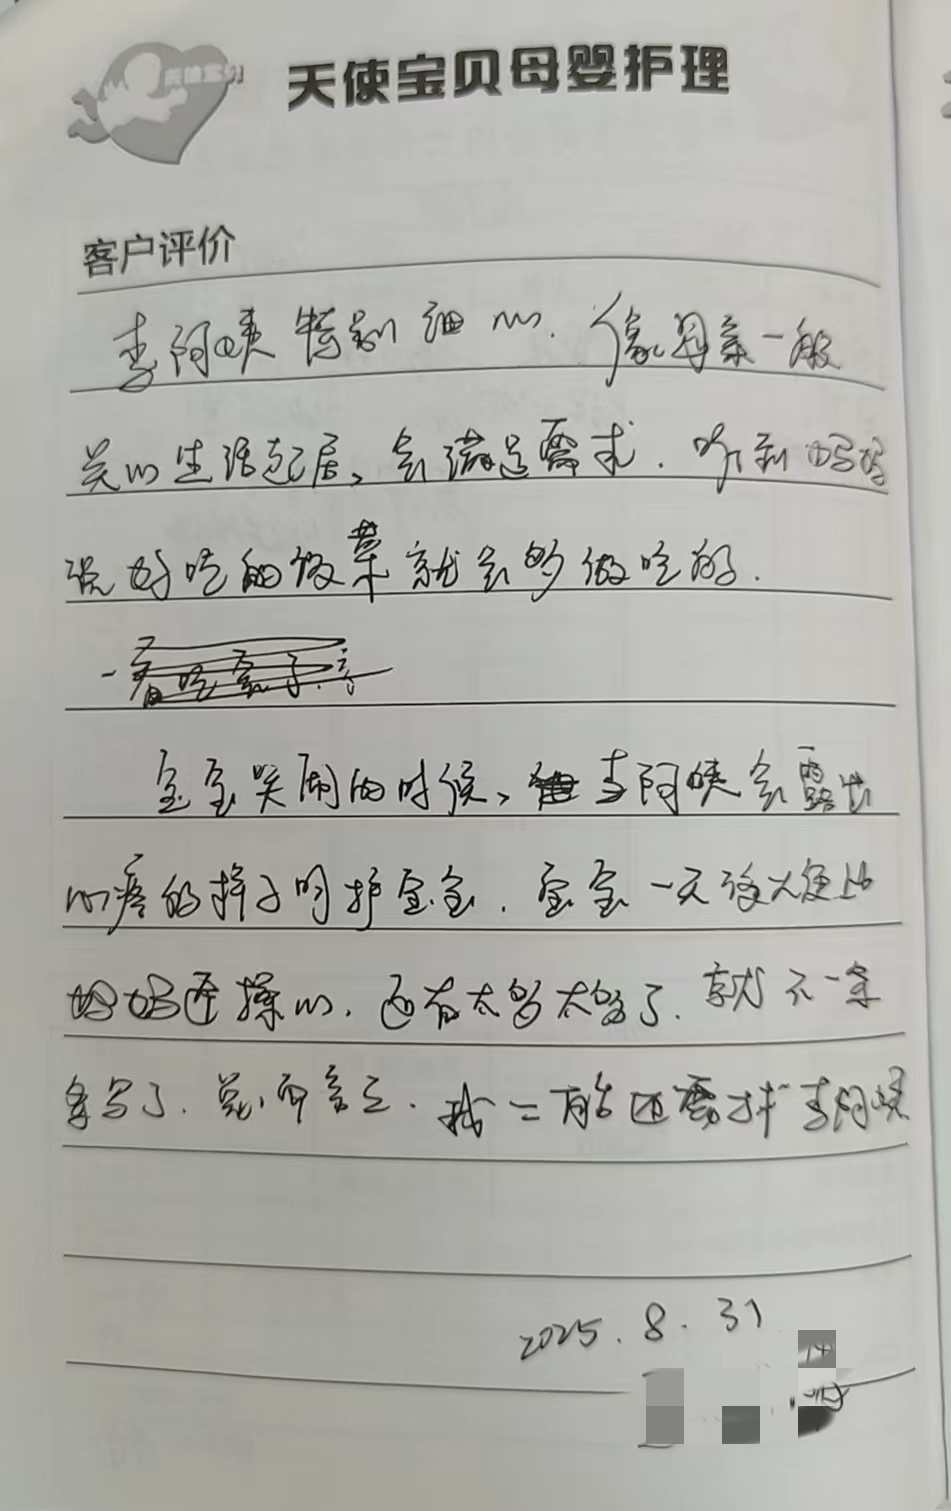 天使宝贝母婴护理
客户评价
李阿姨特别细心.像母亲一般
关心生活起居、会满足需求.听到妈妈
说好吃的饭菜就会多做吃的.
宝宝哭闹的时候、李阿姨会露出
心疼的样子呵护宝宝.宝宝一天没大便比
妈妈还操心.还有太多太多了.就不一条
条写了.总而言之.我二胎还需要李阿姨
2025.8.31